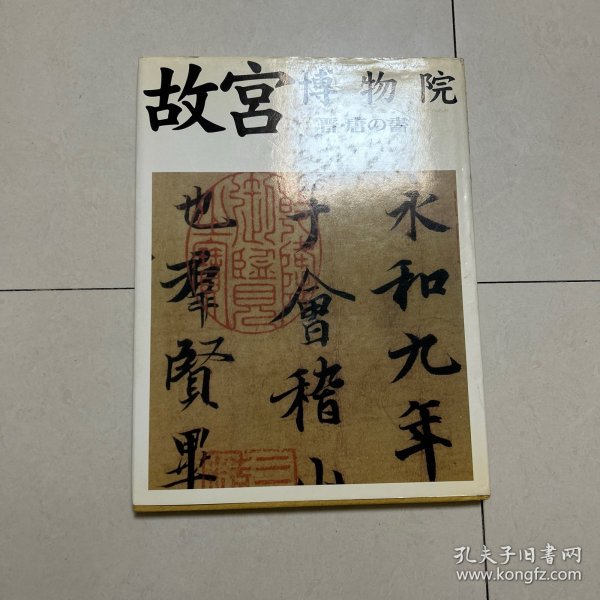 故宮博物院
晋・唐の書
永和九年
于會稽山
也羣賢畢
孔夫子旧書网
www.kongfz.com